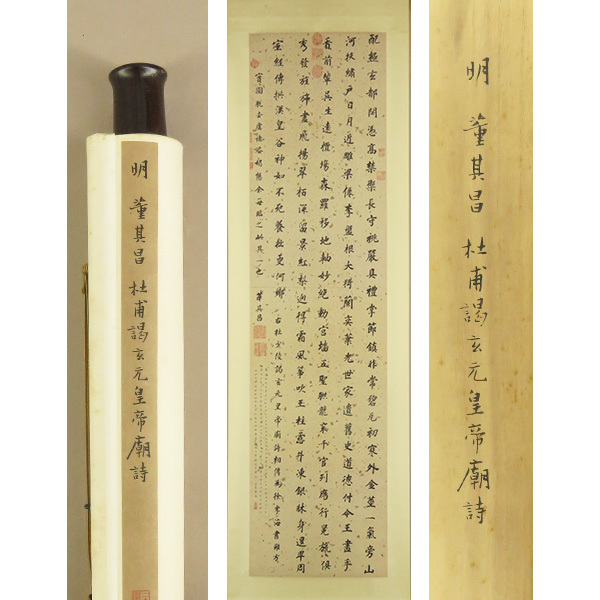 明 董其昌 杜甫謁玄元皇帝廟詩
配極玄都閟憑高禁籞長守祧嚴具禮掌節鎮非常碧瓦初寒外金莖一氣旁山
河扶繡戶日月近雕梁仙李盤根大猗蘭奕葉光世家遺舊史道德付今王畫手
看前輩吳生遠擅場森羅移地軸妙絕動宮墻五聖聯龍袞千官列鴈行冕旒俱
秀發旌旆盡飛揚翠栢深留景紅梨迥得霜風箏吹玉柱露井凍銀牀身退卑周
室經傳拱漢皇谷神如不死養拙更何鄉 右杜少陵謁玄元皇帝廟詩相傳為徐季海書雖有
余每臨之此其一也 董其昌
明 董其昌 杜甫謁玄元皇帝廟詩